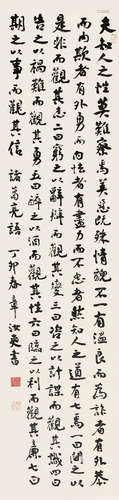 夫知人之性莫難察焉美惡既殊情貌不一有溫良而為詐者有外恭
而內欺者有外勇而內怯者有盡力而不忠者然知人之道有七焉一曰問之以
是非而觀其志二曰窮之以辭辯而觀其變三曰咨之以計謀而觀其識四曰
告之以禍難而觀其勇五曰醉之以酒而觀其性六曰臨之以利而觀其廉七曰
期之以事而觀其信 諸葛亮語 丁卯春 書